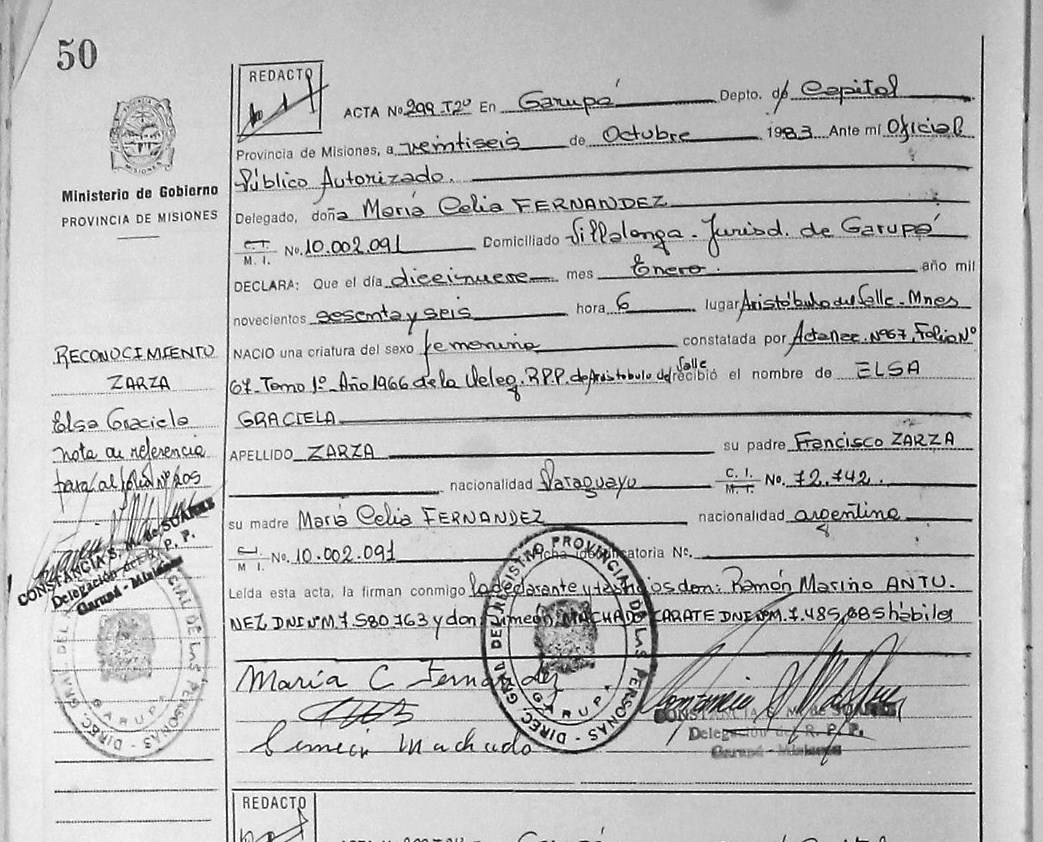 50
REDACTO
ACTA No. 299 T2º En Garupá Depto. d/ Capital
Provincia de Misiones, a veintiseis de Octubre 1983 Ante mí Oficial
Público Autorizado.
MISIONES
Ministerio de Gobierno
PROVINCIA DE MISIONES
Delegado, doña María Celia FERNANDEZ
C.I. M. I. No. 10.002.091 Domiciliado Villalonga - Jurisd. de Garupá
DECLARA: Que el día diecinueve mes Enero. año mil
novecientos sesenta y seis hora 6 lugar Aristóbulo del Valle - Mnes
NACIO una criatura del sexo femenino constatada por Acta nac. Nº 67, Folio Nº
67. Tomo 1º Año 1966 de la Deleg. R.P.P. de Aristobulo del Valle recibió el nombre de ELSA
GRACIELA
APELLIDO ZARZA su padre Francisco ZARZA
nacionalidad Paraguayo C. I. M. I. No. 72.742.
su madre María Celia FERNANDEZ nacionalidad argentina
C.I. M. I. No. 10.002.091 Ficha identificatoria No.
Leída esta acta, la firman conmigo la declarante y testigos don: Ramón Mariño ANTU-
NEZ DNI Nº M. 7.580.763 y don: Simeon MACHADO ZARATE DNI Nº M. 7.485.885 hábiles
RECONOCIMIENTO
ZARZA
Elsa Graciela
nota de referencia
para al folio Nº 205
CONSTANCIA S. M. de SUAREZ
Delegación del R. P. P.
Garupá - Misiones
DIREC. GRAL. DEL REGISTRO PROVINCIAL DE LAS PERSONAS
GARUPA
María C Fernandez
Simeon Machado
DIREC. GRAL. DEL REGISTRO PROVINCIAL DE LAS PERSONAS
GARUPA
CONSTANCIA S. M. de SUAREZ
Delegación del R. P. P.
Garupá - Misiones
REDACTO